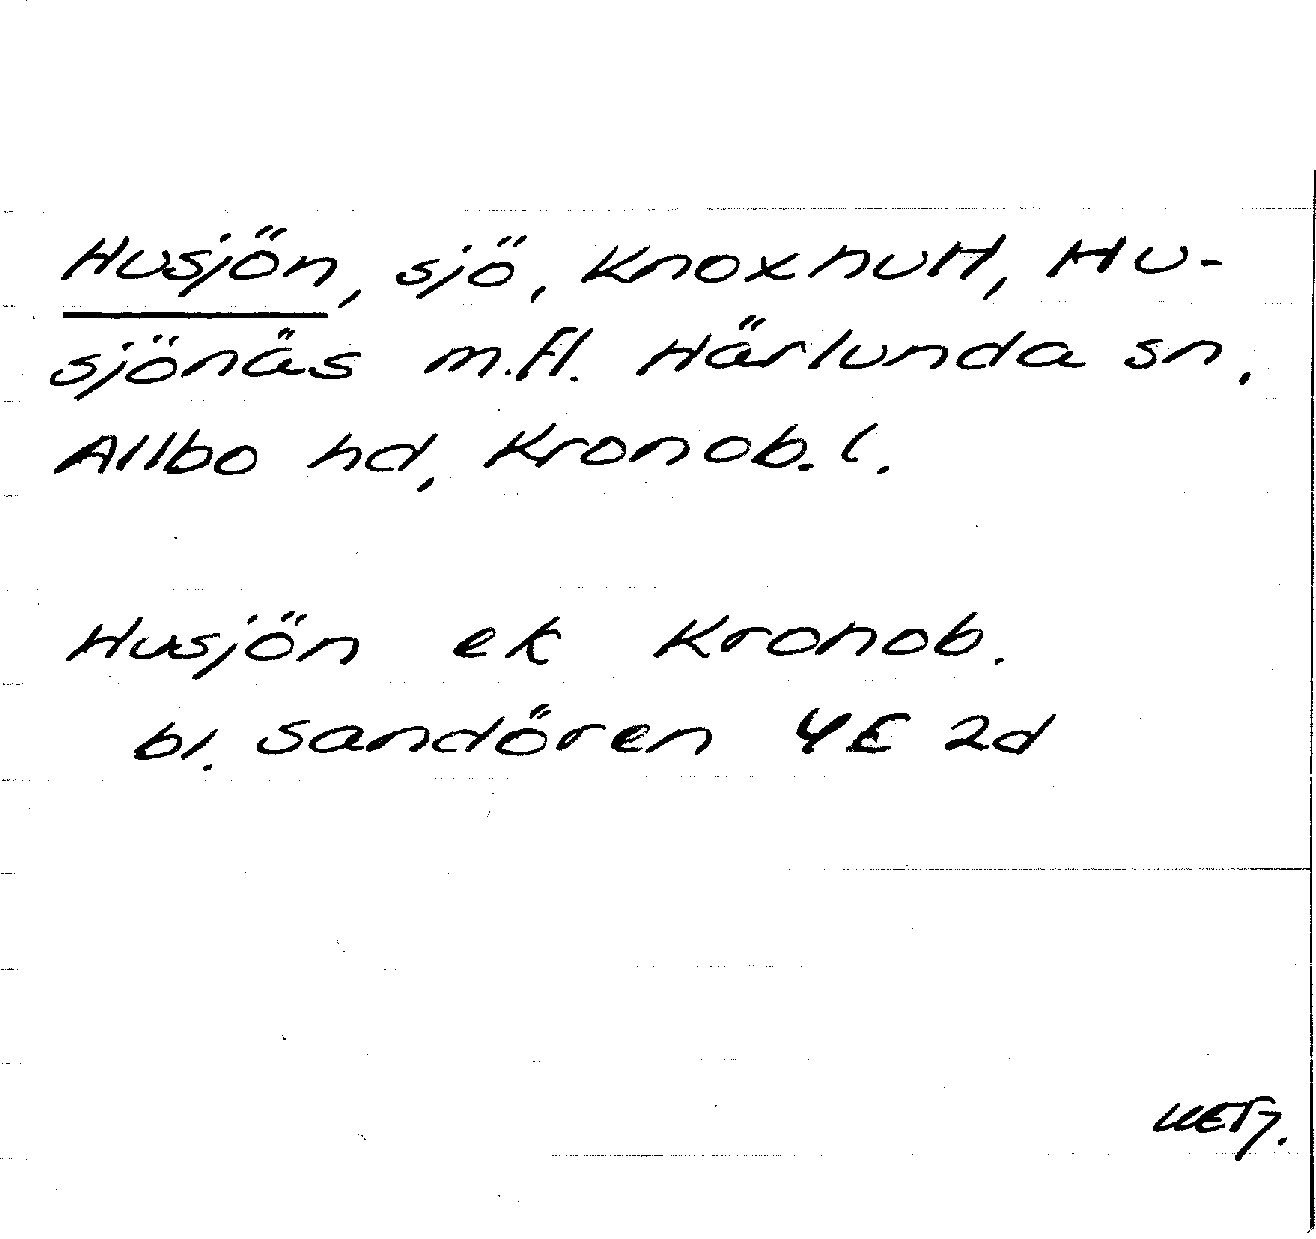 Husjön, sjö, Knoxhult, Hu-
sjönäs m.fl. Härlunda sn,
Allbo hd, Kronob. l.
Husjön ek Kronob.
bl. Sandören 4E 2d